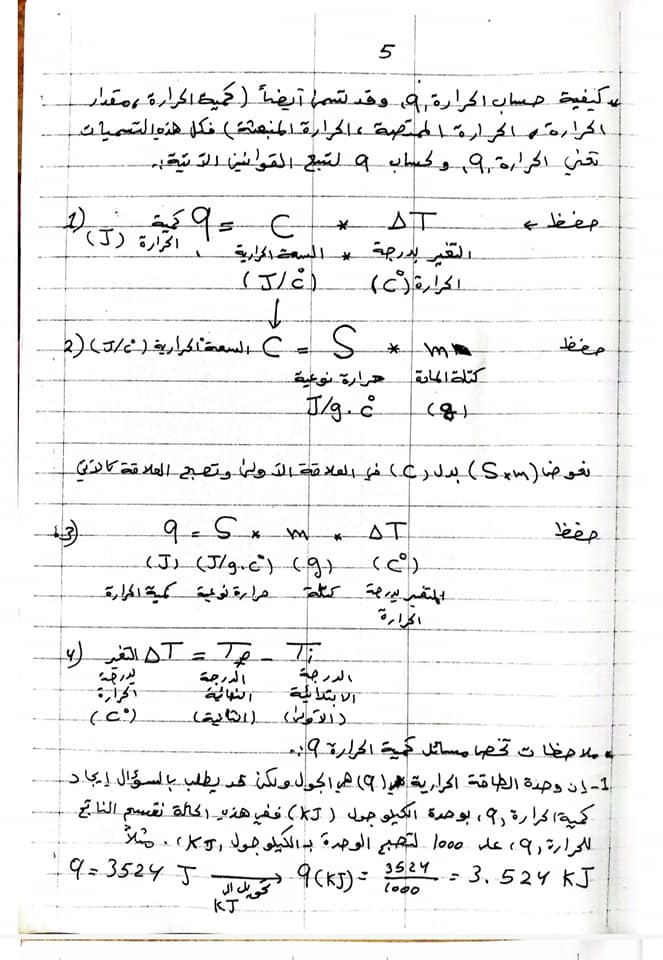 5
* كيفية حساب الحرارة q، وقد تسمى أيضاً (كمية الحرارة، مقدار
الحرارة، الحرارة الممتصة، الحرارة المنبعثة) فكل هذه التسميات
تعني الحرارة q، ولحساب q نتبع القوانين الآتية:.
حفظ ← 1) كمية الحرارة (J) q = C * ΔT
التغير بدرجة * السعة الحرارية
الحرارة (C°) (J/C°)
↓
حفظ 2) (J/C°) السعة الحرارية C = S * m
كتلة المادة حرارة نوعية
(g) J/g.C°
نعوض (S×m) بدل (C) في العلاقة الأولى وتصبح العلاقة كالآتي
حفظ 3) q = S * m * ΔT
(J) (J/g.C°) (g) (C°)
التغير بدرجة كتلة حرارة نوعية كمية الحرارة
الحرارة
4) التغير ΔT = Tf - Ti
بدرجة الدرجة الدرجة
الحرارة النهائية الابتدائية
(C°) (الثانية) (الأولى)
* ملاحظات تخص مسائل كمية الحرارة q:.
1- إن وحدة الطاقة الحرارية (q) هي الجول ولكن قد يطلب بالسؤال إيجاد
كمية الحرارة q، بوحدة الكيلوجول (KJ) ففي هذه الحالة نقسم الناتج
للحرارة q، على 1000 لتصبح الوحدة بـ الكيلوجول (KJ). مثلاً
q = 3524 J تحويل الى KJ → q(KJ) = 3524/1000 = 3.524 KJ